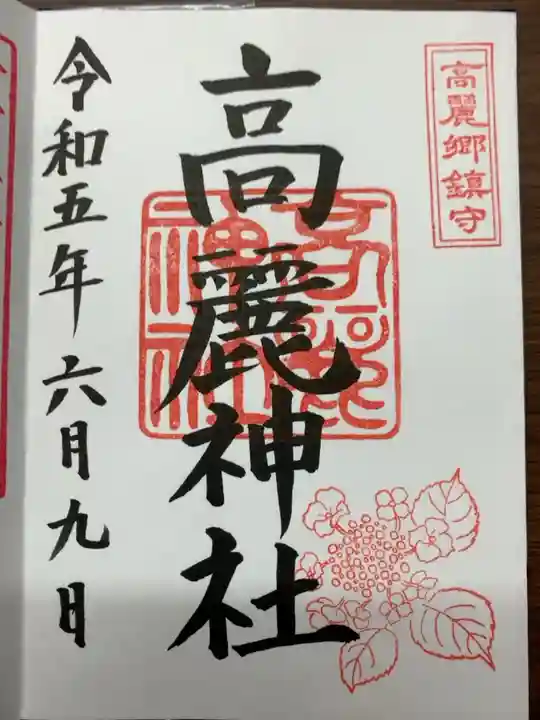 高麗郷鎮守
高麗神社
令和五年六月九日